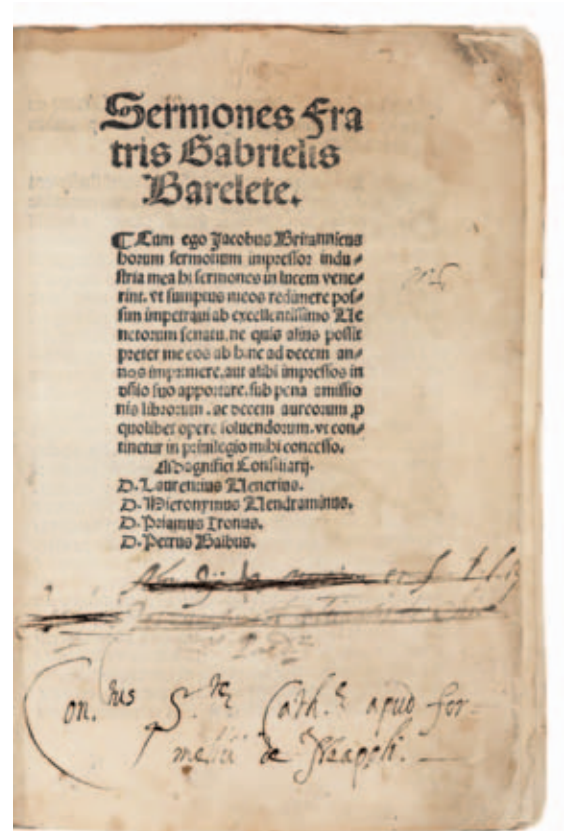 Sermones Fra
tris Gabrielis
Barelete.
Cum ego Jacobus Britannicus
horum sermonum impressor indu⸗
stria mea hi sermones in lucem vene⸗
rint. vt sumptus meos redimere pos⸗
sim impetraui ab excellentissimo Ue
netorum senatu. ne quis alius possit
preter me eos ab hinc ad decem an⸗
nos imprimere. aut alibi impressos in
apportare. sub pena amissio
nis librorum. ac decem aureorum p
quolibet opere soluendorum. vt con⸗
tinetur in priuilegio mihi concesso.
Magnifici Consiliarij.
D. Laurentius Uenerius.
D. Hieronymus Uendraminus.
D. Priamus Tronus.
D. Petrus Balbus.
Con.tus S.te Cath.e apud for-
de Neapoli.